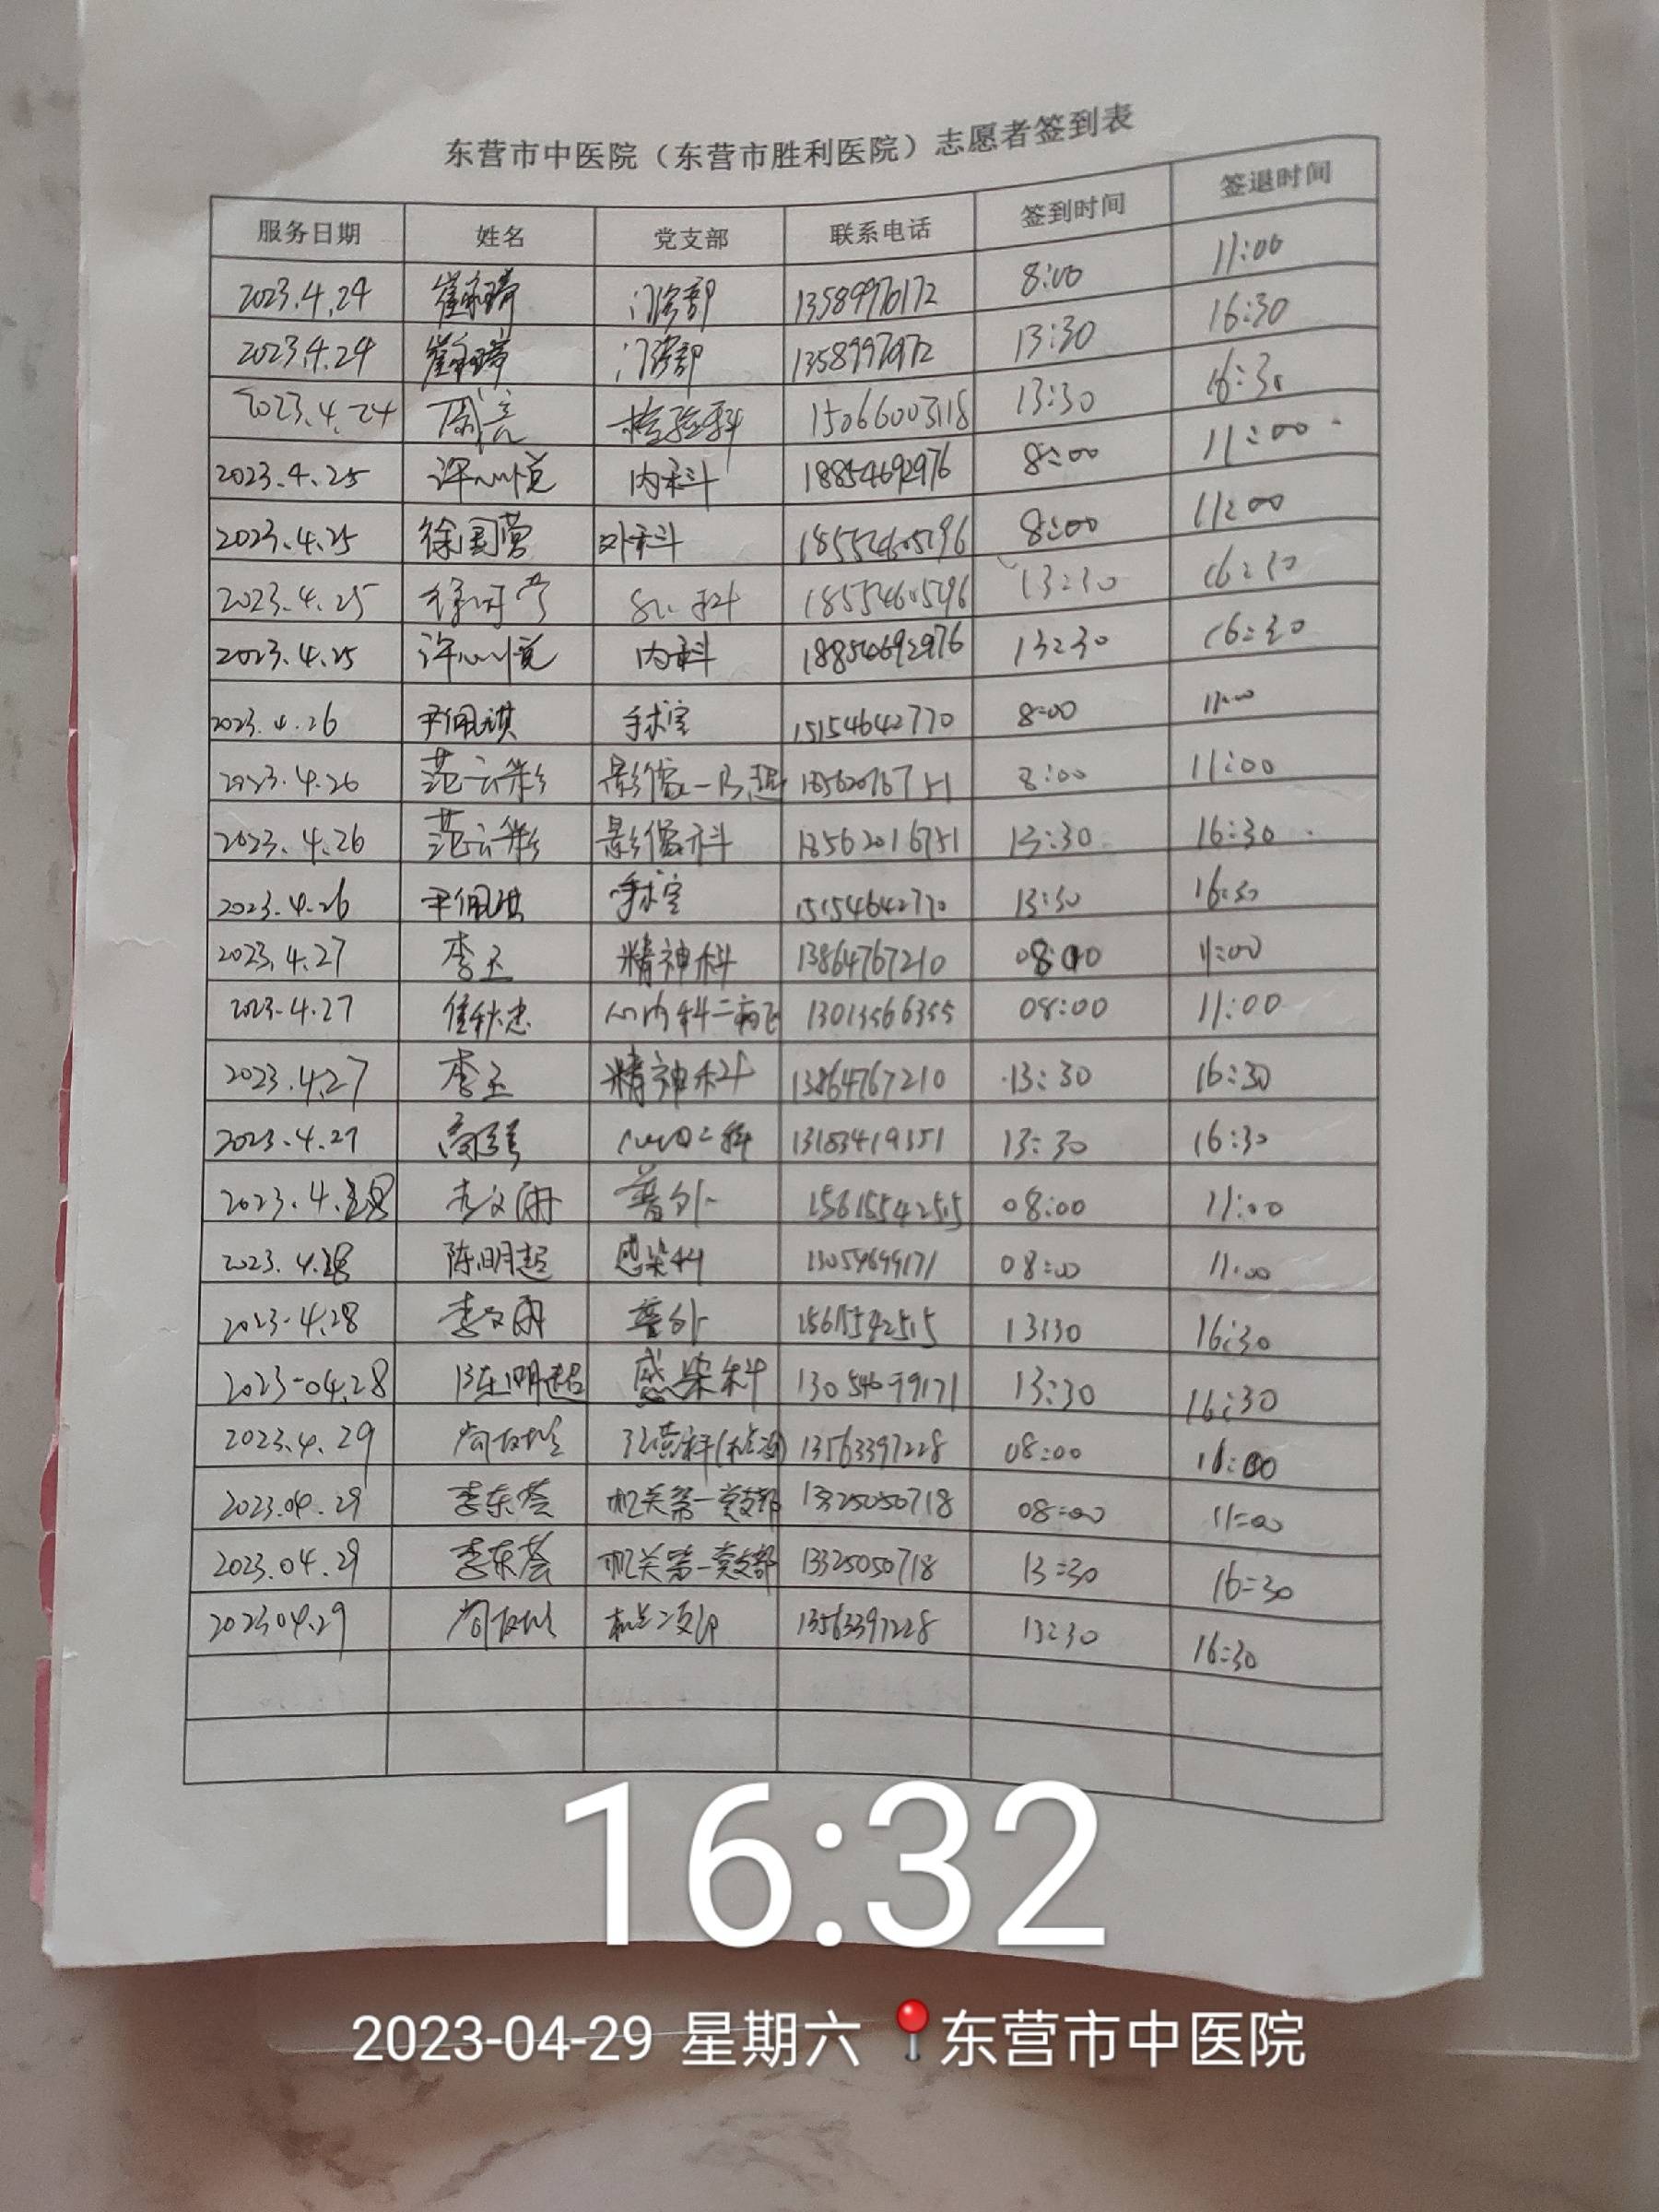 东营市中医院（东营市胜利医院）志愿者签到表
服务日期 姓名 党支部 联系电话 签到时间 签退时间
2023.4.24 门诊部 8:00 11:00
2023.4.24 门诊部 13:30 16:30
2023.4.24 检验科 15066003118 13:30 16:30
2023.4.25 许心悦 内科 18854692976 8:00 11:00
2023.4.25 徐国营 外科 18554605296 8:00 11:00
2023.4.25 18554605296 13:30 16:30
2023.4.25 许心悦 内科 18854692976 13:30 16:30
2023.4.26 尹佩琪 手术室 15154642770 8:00 11:00
2023.4.26 范云彩 8:00 11:00
2023.4.26 范云彩 影像科 13:30 16:30
2023.4.26 尹佩琪 手术室 15154642770 13:30 16:30
2023.4.27 李玉 精神科 13864767210 11:00
2023.4.27 13013566355 08:00 11:00
2023.4.27 李玉 精神科 13864767210 13:30 16:30
2023.4.27 13:30 16:30
2023.4.28 李文雨 普外 15615542515 08:00 11:00
2023.4.28 陈明超 感染科 13054699171 08:00 11:00
2023.4.28 李文雨 普外 15615542515 13:30 16:30
2023-04.28 陈明超 感染科 13054699171 13:30 16:30
2023.4.29 13563397228 08:00 11:00
2023.04.29 李东荟 机关第一党支部 13325050718 08:00 11:00
2023.04.29 李东荟 机关第一党支部 13325050718 13:30 16:30
2023 04.29 13563397228 13:30 16:30
16:32
2023-04-29 星期六 东营市中医院